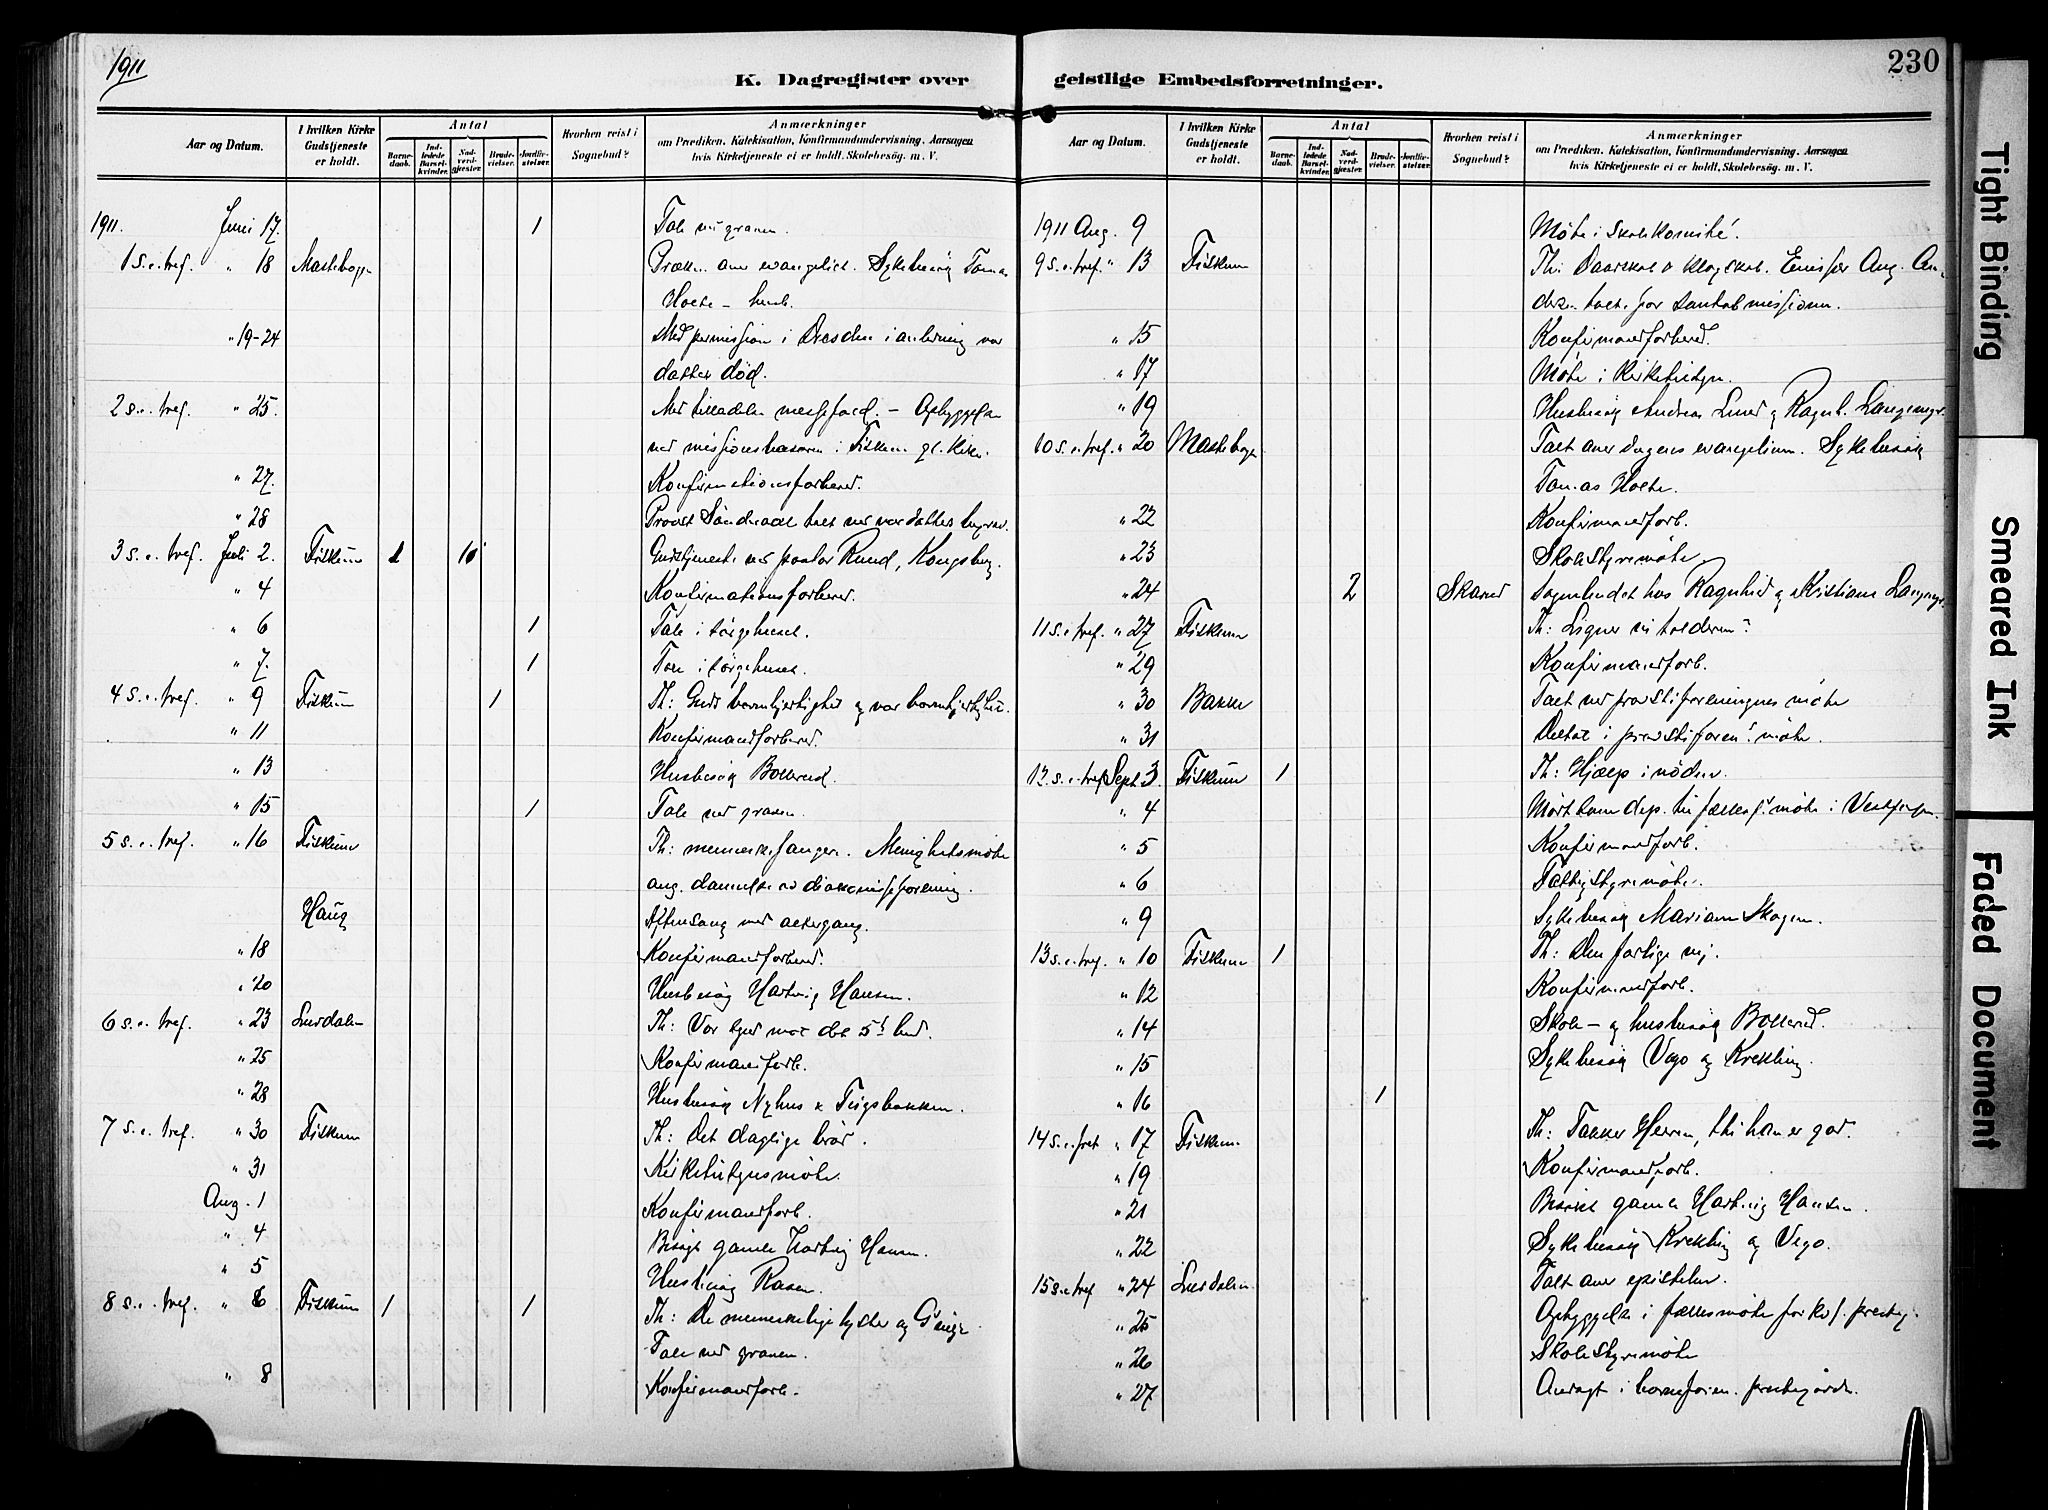 1911
230
K. Dagregister over
geistlige Embedsforretninger.
Aar og Datum.
I hvilken Kirke Gudstjeneste er holdt.
Antal
Barnedaab.
Indledede Barselkvinder.
Nadverdgjester.
Brudevielser.
Jordfæstelser.
Hvorhen reist i Sognebud?
Anmærkninger
om Prædiken, Katekisation, Konfirmandundervisning, Aarsagen
hvis Kirketjeneste ei er holdt, Skolebesøg, m. V.
1911. Juni 17. 1 Tale ved graven.
1 S. e. tref. " 18 Præken over evangeliet. Sykebesøg Tomas
Holte
" 19-24 Med permission i Dresden i anledning vor
datter død.
2 s. e. tref. " 25. Med tilladelse messefald. - Opbyggelse
ved missionsbasaren i Fiskum gl. kirke.
" 27. Konfirmationsforbered.
" 28 Provst talt ved vor datters begrav.
3 s. e. tref. Juli 2. Fiskum 1 10 Gudstjeneste ved pastor Rund, Kongsberg.
" 4 Konfirmationsforbered.
" 6 1 Tale i sørgehuset.
" 7. 1 Tale i sørgehuset.
4 s. e. tref. " 9 Fiskum 1 Th: Guds barmhjertighet og vor barmhjertighet.
" 11 Konfirmandforbered.
" 13 Husbesøg Bollerud.
" 15 1 Tale ved graven.
5 s. e. tref. " 16 Fiskum Th: menneskefangere. Menighetsmøte
ang. dannelse av diakonisseforening.
Haug Aftensang med altergang.
" 18 Konfirmandforbered.
" 20 Husbesøg Hartvig Hansen.
6 s. e. tref. " 23 Lurdalen Th: Vor synd mot det 5t bud.
" 25 Konfirmandforb.
" 28 Husbesøg Nyhus &
7 s. e. tref. " 30 Fiskum Th: Det daglige brød.
" 31 Kirketilsynsmøte.
Aug. 1 Konfirmandforb.
" 4 Besøgt gamle Hartvig Hansen.
" 5 Husbesøg Rasen.
8 s. e. tref. " 6 Fiskum 1 1 Th: De menneskelige lyster og
Tale ved graven.
" 8 Konfirmandforb.
Aar og Datum.
I hvilken Kirke Gudstjeneste er holdt.
Antal
Barnedaab.
Indledede Barselkvinder.
Nadverdgjester.
Brudevielser.
Jordfæstelser.
Hvorhen reist i Sognebud?
Anmærkninger
om Prædiken, Katekisation, Konfirmandundervisning, Aarsagen
hvis Kirketjeneste ei er holdt, Skolebesøg, m. V.
1911 Aug. 9 Møte i skolekomité.
9 s. e. tref. " 13 Fiskum Th: Daarskab & klogskab. Emissær Aug. An-
dersen talte for Santalmissionen.
" 15 Konfirmandforbered.
" 17 Møte i kirketilsyn.
" 19 Husbesøg Andreas Lund og Ragnh.
10 s. e. tref. " 20 Talt over dagens evangelium. Sykebesøk
Tomas Holte.
" 22 Konfirmandforb.
" 23 Skolestyremøte
" 24 2 Skarud Sognebudet hos Ragnhild og Kristiane
11 s. e. tref. " 27 Fiskum Th: Ligner vi tolderen?
" 29 Konfirmandforb.
" 30 Bakke Talt ved provstiforeningens møte
" 31 Deltat i provstiforen! møte.
12. s. e. tref. Sept. 3 Fiskum 1 Th: Hjælp i nøden.
" 4 Møtt som dep. til møte i Vestfossen.
" 5 Konfirmandforb.
" 6 Fattigstyremøte.
" 9 Sykebesøg Mariane Skogen.
13 s. e. tref. " 10 Fiskum 1 Th: Den farlige vej.
" 12 Konfirmandforb.
" 14 Skole- og husbesøg Bollerud.
" 15 Sykebesøg Vego og Krekling.
" 16 1
14 s. e. tref " 17 Fiskum. Th: Takker Herren, thi han er god.
" 19 Konfirmandforb.
" 21 Besøkt gamle Hartvig Hansen.
" 22 Sykebesøg Krekling og Vego.
15 s. e tref " 24 Lurdalen Talt over epistelen.
" 25 Opbyggelse i fællesmøte for
" 26 Skolestyremøte
" 27 Andagt i barneforen. prestegården.
Tight Binding
Smeared Ink
Faded Document